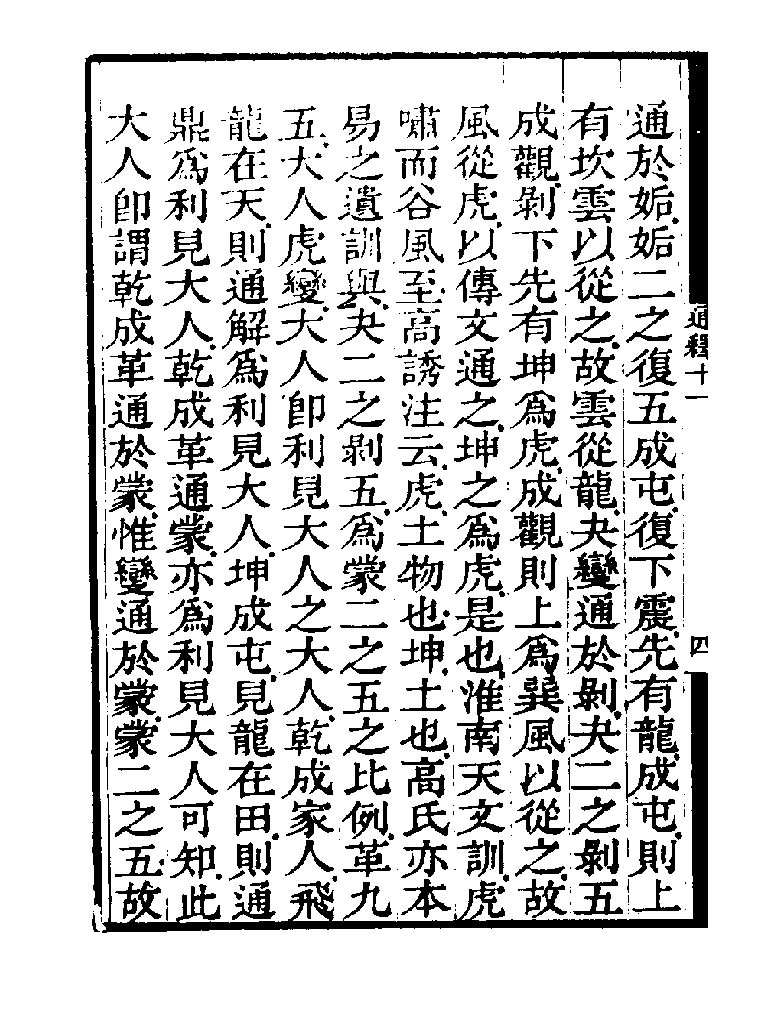 通於姤姤二之復五成屯復下震先有龍成屯則上
有坎雲以從之故雲從龍夬變通於剝夬二之剝五
成觀剝下先有坤爲虎成觀則上爲巽風以從之故
風從虎以傳文通之坤之爲虎是也淮南天文訓虎
嘯而谷風至高誘注云虎土物也坤土也高氏亦本
易之遺訓與夬二之剝五爲蒙二之五之比例革九
五大人虎變大人卽利見大人之大人乾成家人飛
龍在天則通解爲利見大人坤成屯見龍在田則通
鼎爲利見大人乾成革通蒙亦爲利見大人可知此
大人卽謂乾成革通於蒙惟變通於蒙蒙二之五故
通釋十一
四